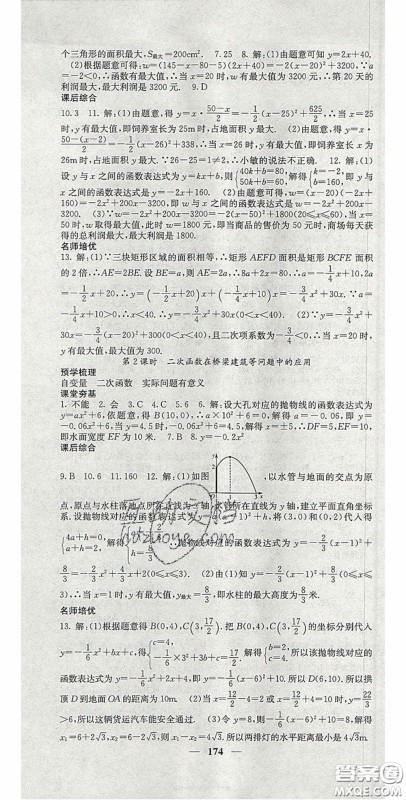 个三角形的面积最大，S最大=200cm². 7.25 8.解：(1)由题意可知 y=2x+40.
(2)根据题意可得：w=(145-x-80-5)(2x+40)=-2x²+80x+2400=-2(x-20)²+3200，∵a
=-2<0，∴函数有最大值，∴当 x=20 时，w 有最大值为 3200 元，∴第 20 天的
利润最大，最大利润是 3200 元. 9.D
课后综合
10.3 11.解：(1)由题意，得 y=x·(50-x)/2=-1/2(x-25)²+625/2，∴当 x=25
时，y 有最大值，即饲养室长为 25m 时，占地面积 y 最大. (2)由题意，得 y=x·
(50-(x-2))/2=-1/2(x-26)²+338，∴当 x=26 时，y 有最大值，即饲养室长 x 为
26m 时，占地面积 y 最大. ∵26-25=1≠2，∴小敏的说法不正确. 12.解：(1)
设 y 与 x 之间的函数表达式为 y=kx+b，则{40k+b=80, 50k+b=60, 解得{k=-2, b=160, 即 y 与
x 之间的函数表达式是 y=-2x+160. (2)由题意可得，w=(x-20)(-2x+
160)=-2x²+200x-3200. (3)∵w=-2x²+200x-3200=-2(x-50)²+1800(20≤x≤60)，当 x=
50 时，w 取得最大值，此时 w=1800，即当商品的售价为 50 元时，商场每天获
得的总利润最大，最大利润是 1800.
名师培优
13.解：(1)∵三块矩形区域的面积相等，∴矩形 AEFD 面积是矩形 BCFE 面积
的 2 倍，∴AE=2BE. 设 BE=a，则 AE=2a，∴8a+2x=80，∴a=-1/4x+10，2a=
-1/2x+20，∴y=(-1/2x+20)x+(-1/4x+10)x=-3/4x²+30x，∵a=-1/4x
+10>0，∴x<40，∴y=-3/4x²+30x(0<x<40). (2)∵y=-3/4x²+30x=
-3/4(x-20)²+300(0<x<40)，且二次项系数为-3/4<0，∴当 x=20 时，y
有最大值，最大值为 300.
第 2 课时 二次函数在桥梁建筑等问题中的应用
预学梳理
自变量 二次函数 实际问题有意义
课堂夯基
1.不能 2.会 3.C 4.C 5.C 6.解：设大孔对应的抛物线的函数表达式为
y=ax²+6，依题意，得 B(10，0)，∴a×10²+6=0，解得 a=-0.06，即 y=
-0.06x²+6，当 y=4.5 时，-0.06x²+6=4.5，解得 x=±5，∴DF=5，EF=10，即
水面宽度 EF 为 10 米. 7.B 8.y=-1/9(x+6)²+4
课后综合
9.B 10.6 11.160 12.解：(1)如图 ，以水管与地面的交点为原
点，原点与水柱落地点所在直线为 x 轴，水管所在直线为 y 轴，建立平面直角坐标
系，设抛物线对应的函数表达式为 y=a(x-1)²+h，将(3，0)和(0，2)代入得
{4a+h=0, a+h=2, 解得{a=-2/3, h=8/3, ∴抛物线对应的函数表达式为 y=-2/3(x-1)²+
8/3=-2/3x²+4/3x+2(0≤x≤3). (2)由(1)知 y=-2/3(x-1)²+8/3(0≤
x≤3)，∴当 x=1 时，y 有最大值，y最大=8/3，即水柱的最大高度为8/3米.
名师培优
13.解：(1)根据题意得 B(0，4)，C(3，17/2). 把 B(0，4)，C(3，17/2)的坐标分别代入
y=-1/6x²+bx+c，得{c=4, -1/6×3²+3b+c=17/2. 解得{b=2, c=4. 所以该抛物线对应的
函数表达式为 y=-1/6x²+2x+4，则 y=-1/6(x-6)²+10. 所以 D(6，10). 所以拱
顶 D 到地面 OA 的距离为 10m. (2)当 x=12/2-4=2 或 x=12/2+4=10 时，y=22/3
>6，所以这辆货运汽车能安全通过. (3)令 y=8，则-1/6(x-6)²+10=8，解得
x₁=6+2√3，x₂=6-2√3，则 x₁-x₂=4√3. 所以两排灯的水平距离最小是 4√3m.
174
答案圈
MXQE.COM